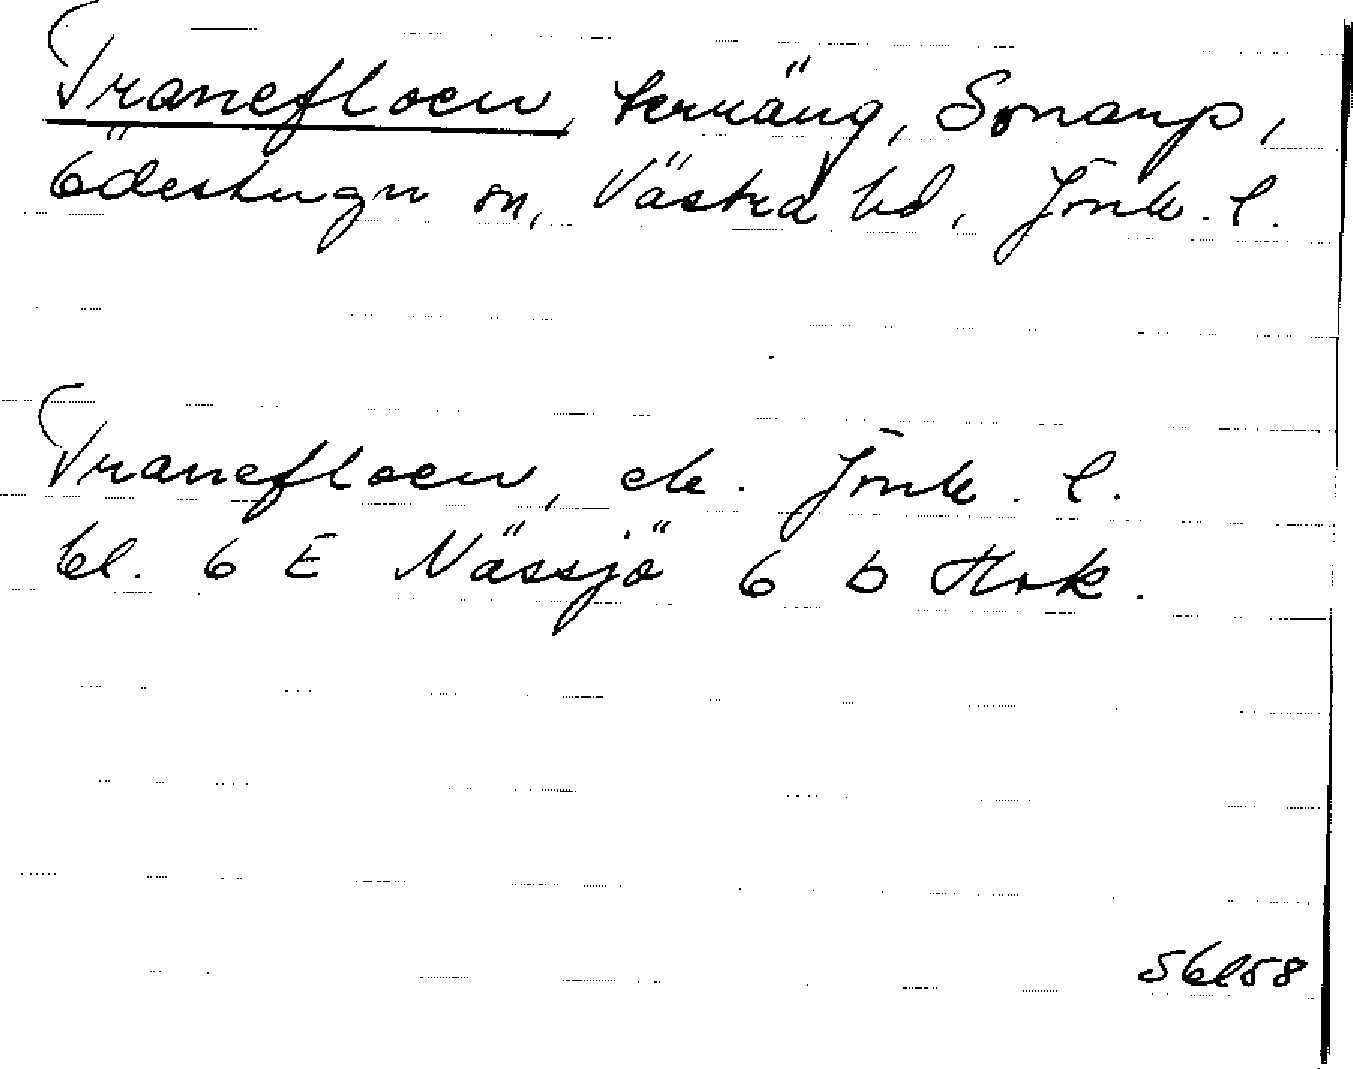 Tranefloen, terräng, Sonarp,
Ödestugu sn, Västra hd, Jönk. l.
Tranefloen, ek. Jönk. l.
bl. 6 E Nässjö 6 b Hok.
5bl58